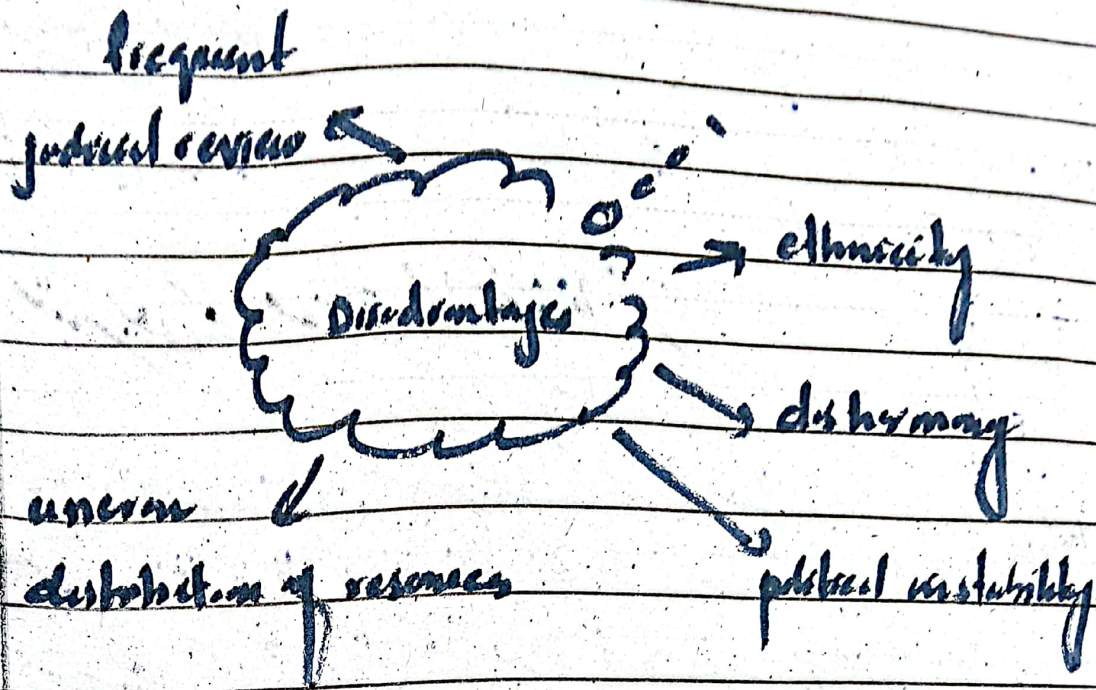 frequent
judicial review
ethnicity
Disadvantages
disharmony
uneven
distribution of resources
political instability